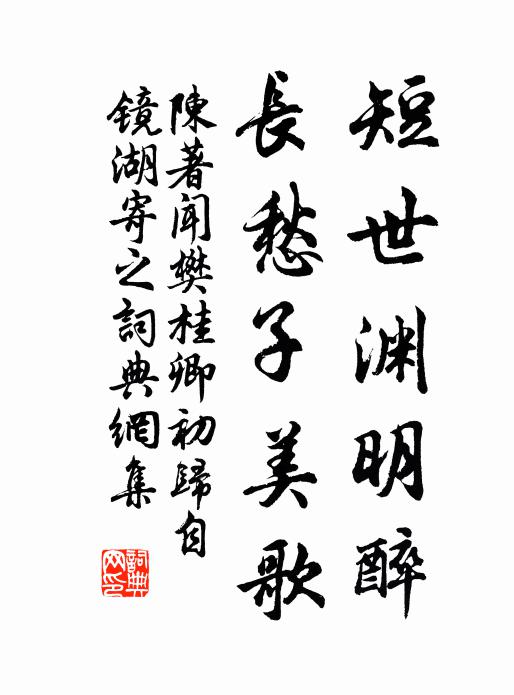 短世渊明醉
長愁子美歌
陳著聞樊桂卿初歸自
鏡湖寄之詞典網集
詞典
网印